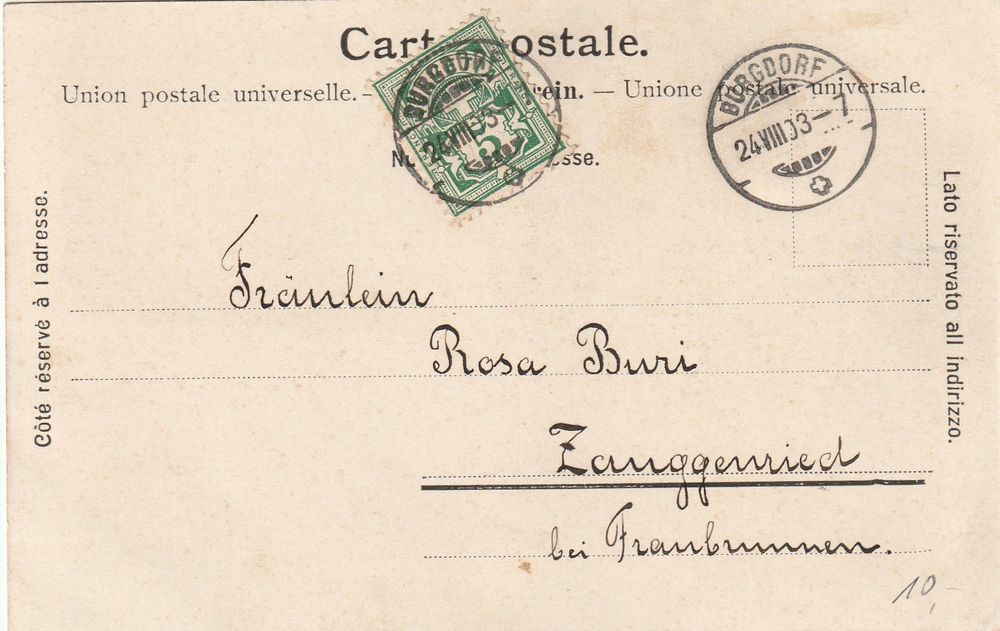 Carte postale.
Union postale universelle. — rein. — Unione postale universale.
BURGDORF
24.VIII.03
5
BURGDORF
24.VIII.03—7
Côté réservé à l adresse.
Lato riservato all indirizzo.
Fräulein
Rosa Buri
Zauggenried
bei Fraubrunnen.
10,-